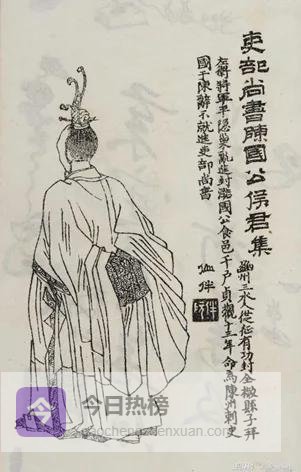 吏部尚書陳國公侯君集
豳州三水人從征有功封全椒縣子拜
左衛將軍平隱巢亂進封潞國公食邑千戶貞觀十一年命為陳州刺史
國于陳辭不就進吏部尚書
今日热榜